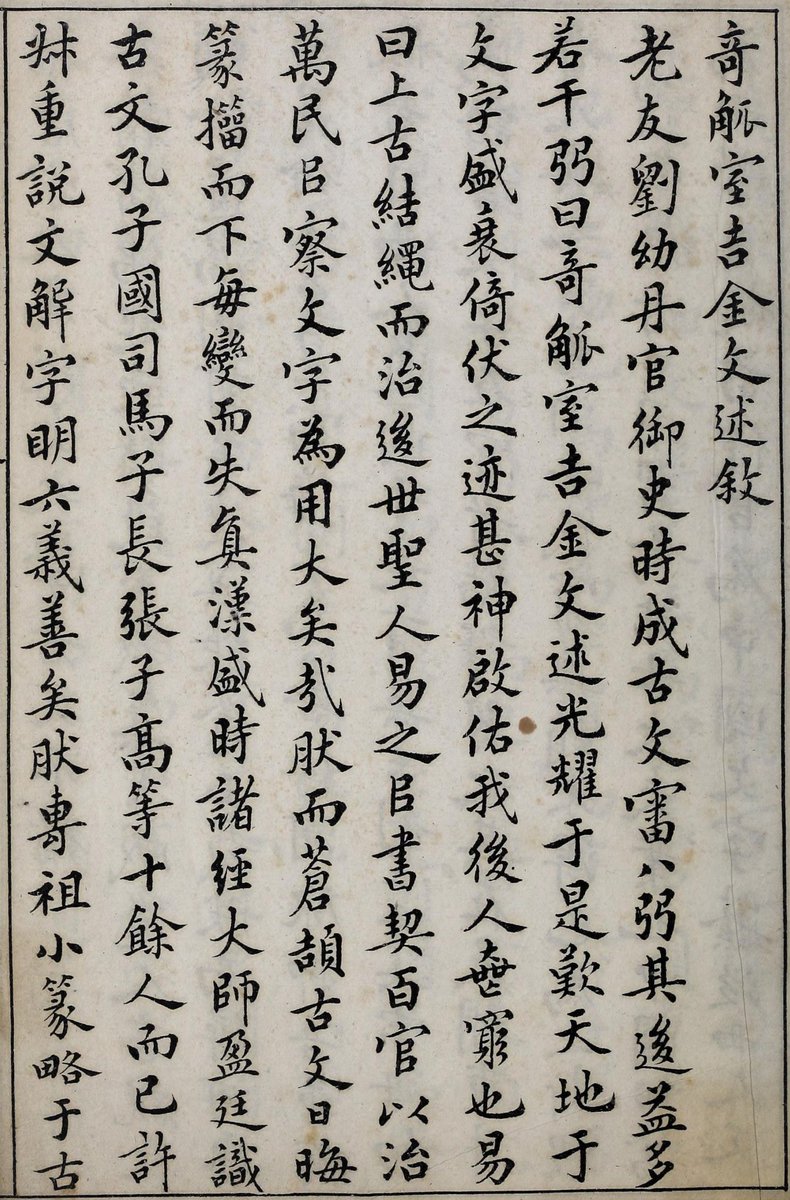 奇觚室吉金文述敘
老友劉幼丹官御史時成古文審八弜其後益多
若干弜曰奇觚室吉金文述光耀于是歎天地于
文字盛衰倚伏之迹甚神啟佑我後人無窮也易
曰上古結繩而治後世聖人易之㠯書契百官以治
萬民㠯察文字為用大矣哉肰而蒼頡古文日晦
篆籀而下每變而失真漢盛時諸經大師盈廷識
古文孔子國司馬子長張子高等十餘人而已許
叔重說文解字明六義善矣肰專祖小篆略于古